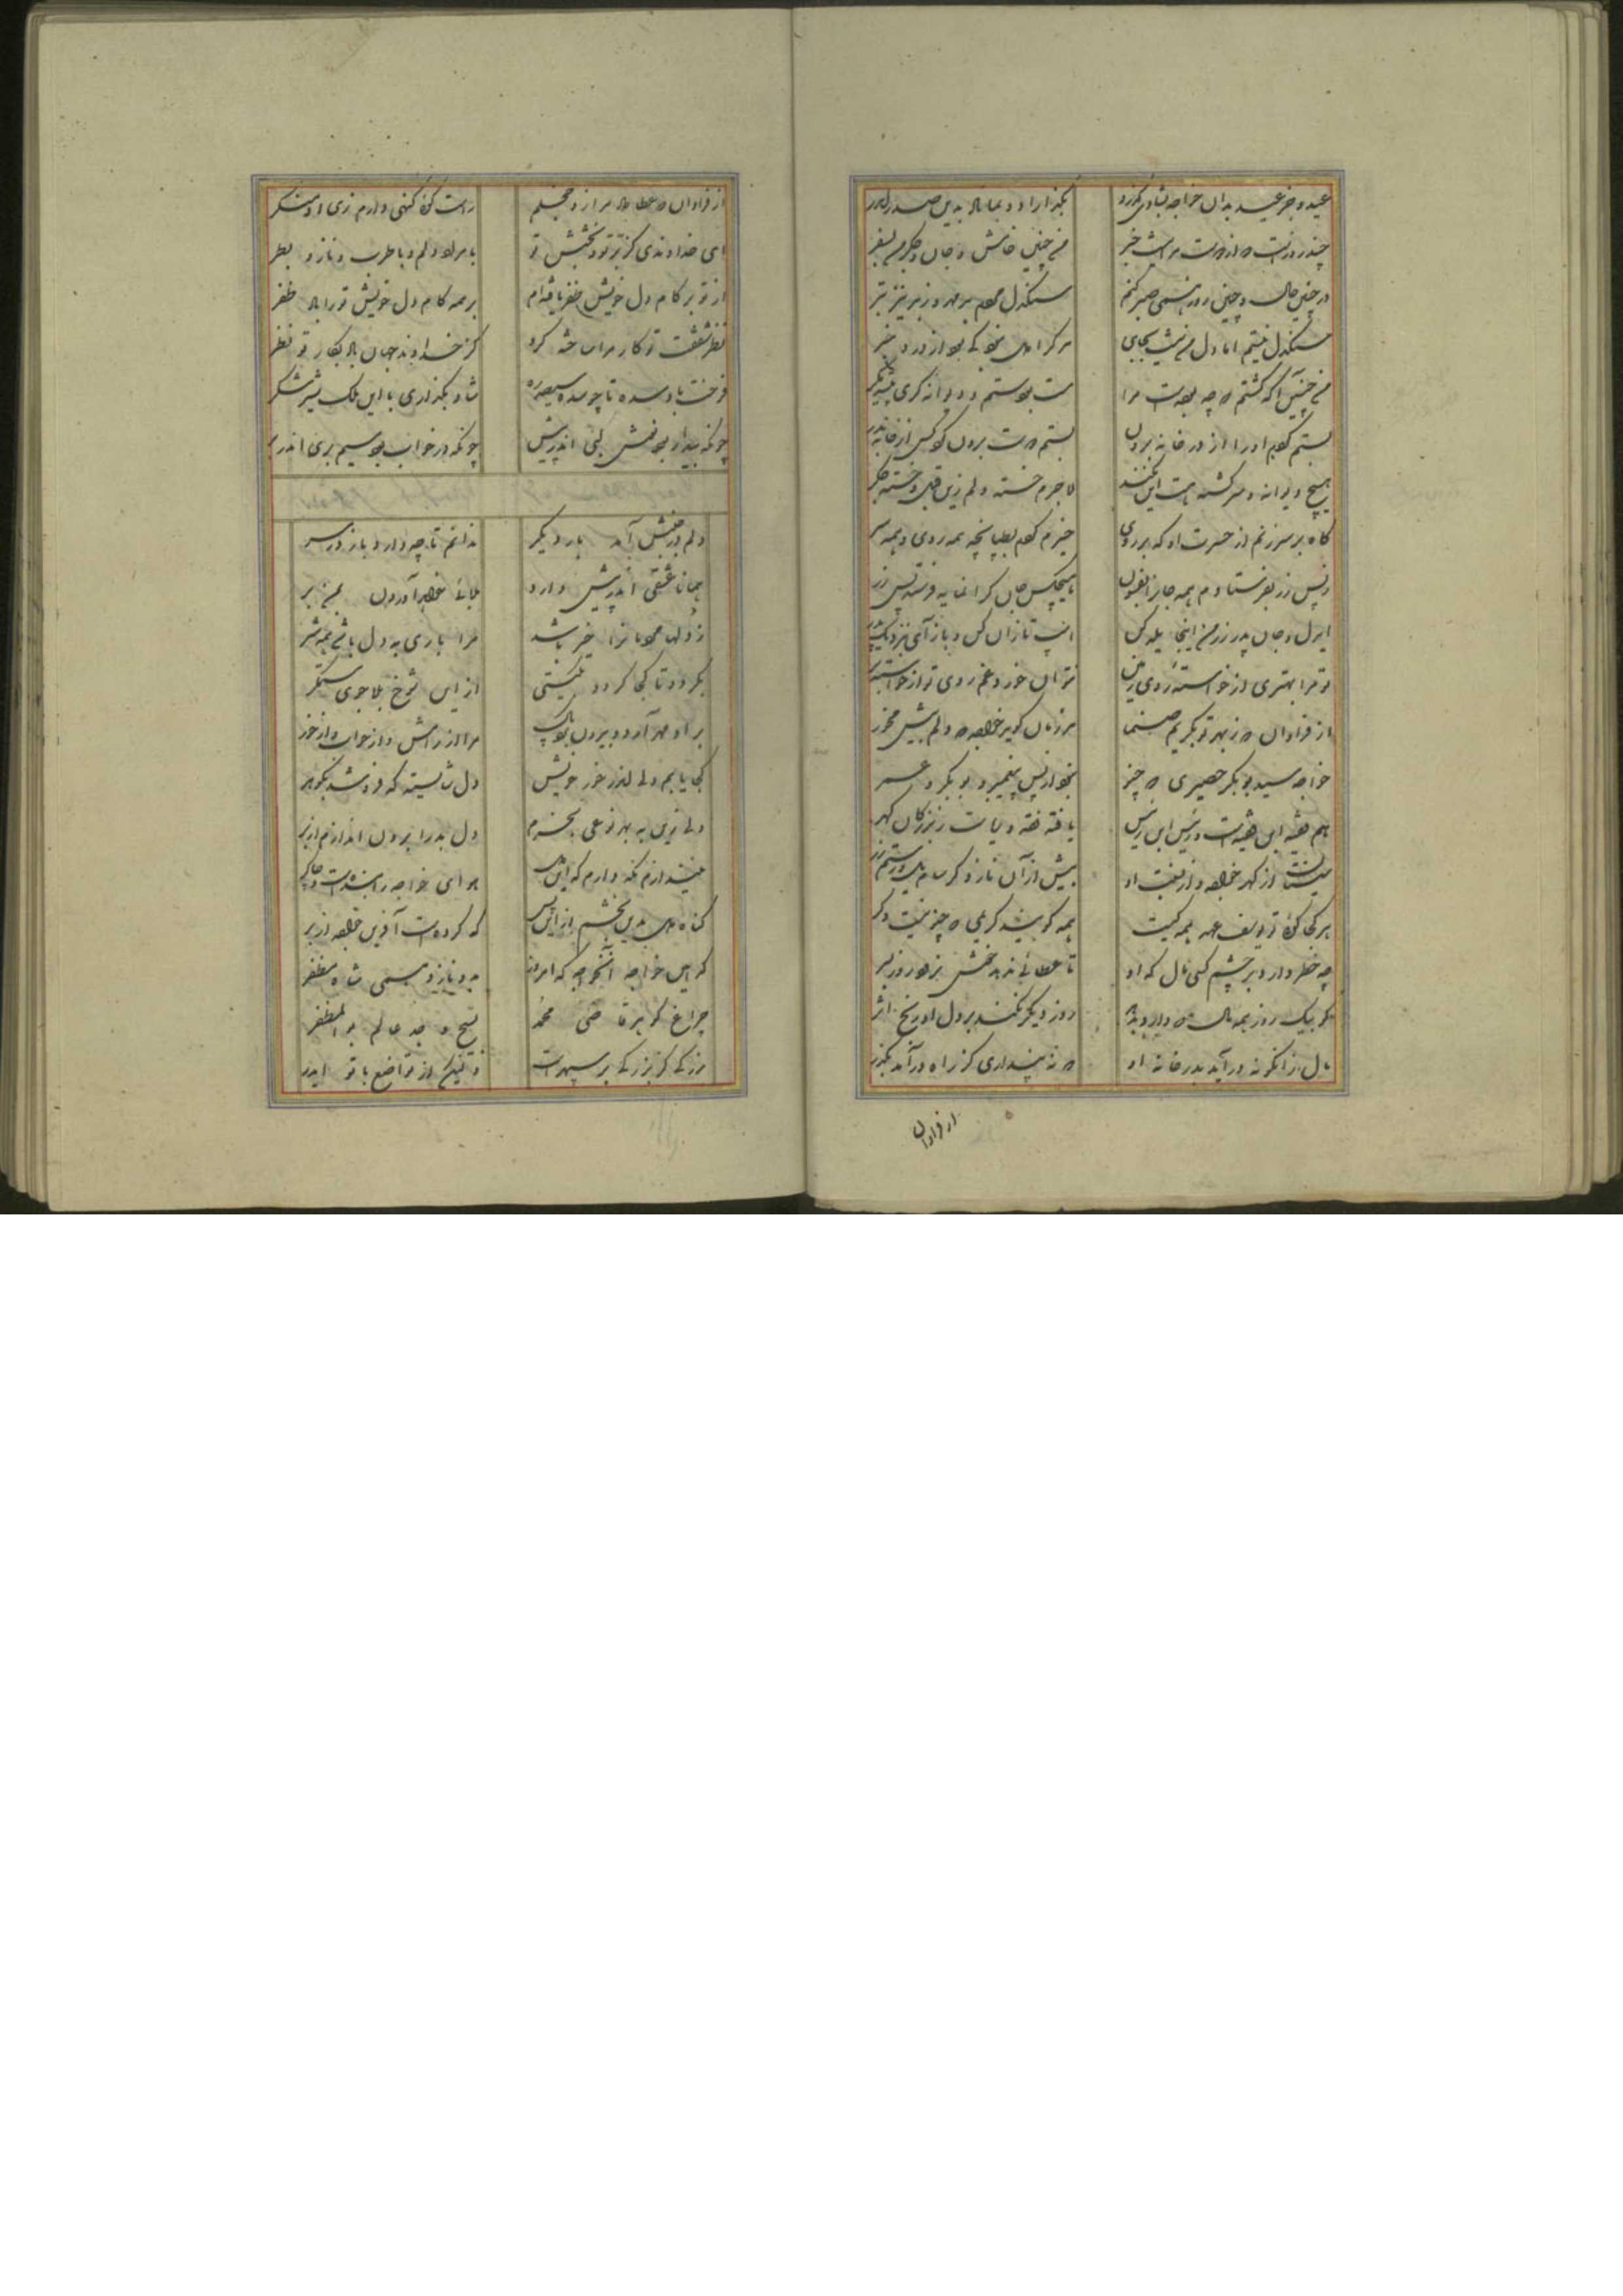 عید و جز عید بدان خواجه بشادی گذرد بگذاراد و بماناد بدین صدر اندر
چند روزست که از دوست مرا نیست خبر من چنین خامش و جان و جگر من بسفر
در چنین حال و چنین روز همی صبر کنم سنگدل مردم بد مهر و ز بد نیز بتر
سنگدل نیستم اما دل من نیست بجای هر کرا دل نبود کی بود از درد خبر
من چنین آگه گشتم که چه بودست مرا مست بودستم و دیوانه کری
بستم گویم او را از در خانه برون بستم دست برون کو کس از خانه بدر
هیچ دیوانه و سرگشته و مست این نکند لاجرم خسته دلم زین قبل و خسته جگر
گاه بر سر زنم از حسرت او گه بر روی خیزم گویم بطپانچه همه روی و همه سر
از پس زر بفرستادم همه جاز بفسوس هیچکس جان گرانمایه فرستد پس زر
ای دل و جان پدر زر من اینجا یله کن اسب تازان کن و باز آی بنزدیک پدر
تو مرا بهتری از خواسته روی زمین نتوان خورد غم روی تو از خواسته بر
از فراوان که ز بهر تو بگریم صنما هر زمان گوید خواجه که دلم بیش مخور
خواجه سید بوبکر حصیری که چنو نبود از پس پیغمبر و بوبکر و عمر
هم فقیه ابن فقیهست و رئیس ابن رئیس یافته فقه و ریاست ز بزرگان گهر
سیستان از گهر خواجه و از نعمت او بیش از آن نازد کز سام یل و رستم زر
هر کجا کوئی تو یوسف عهد بهمه گیتی همه گویند کریمی که چنو نیست دگر
چه خطر دارد بر چشم کسی مال که او تا عطائی ندهد خوش نبرد روز بسر
گر بیک روز همه مال که دارد بدهد روز دیگر نکند بر دل او رنج اثر
مال زانگونه درآید بدر خانه او که نپنداری کز راه درآمد بگذر
از فراوان
از فراوان که عطا داد مرا زو خجلم راست گوئی گنهی دارم زی او منکر
ای خداوندی کز تو و بخشش تو با مراد دلم و با طرب و ناز و بطر
از تو بر کام دل خویش ظفر یافته‌ام بر همه کام دل خویش ترا باد ظفر
نظر شفقت تو کار مرا ساخته کرد کز خداوند جهان باد بکار تو نظر
فرخت باد سده تا چو سده سیصد شاد بگذاری با این ملک شیر شکر
چونکه بیدار بوی نقش بتی اندر پیش چونکه در خواب بوی سیم بری اندر بر
دلم در جنبش آمد بار دیگر ندانم تا چه دارد باز در سر
همانا عشقی اندر پیش دارد بلائی خواهد آوردن بمن بر
ز دلها مردمانرا خیر باشد مرا باری ز دل باشد همه شر
بگردد تا کجا گردد بگیتی ازین شوخ بلا جوی ستمگر
بر او مهر آرد و بیرون برد پاک مرا از رامش و از خواب و از خور
کجا یابم دلی اندر خور خویش دل شایسته که فروشد بگوهر
دلی زین به بهر نوعی بخرم دل بد را برون اندازم از بر
نیندازم نگه دارم که این دل هوای خواجه را بندست و چاکر
گناه دل بدین بخشم ازین پس که کردست آفرین خواجه از بر
کدامین خواجه آنخواجه که امروز بدو نازد همی شاه مظفر
چراغ گوهر قاضی محمد نسیج وحد عالم بو المظفر
بزرگی کز بزرگی بر سپهرست ولیکن از تواضع با تو ایدر